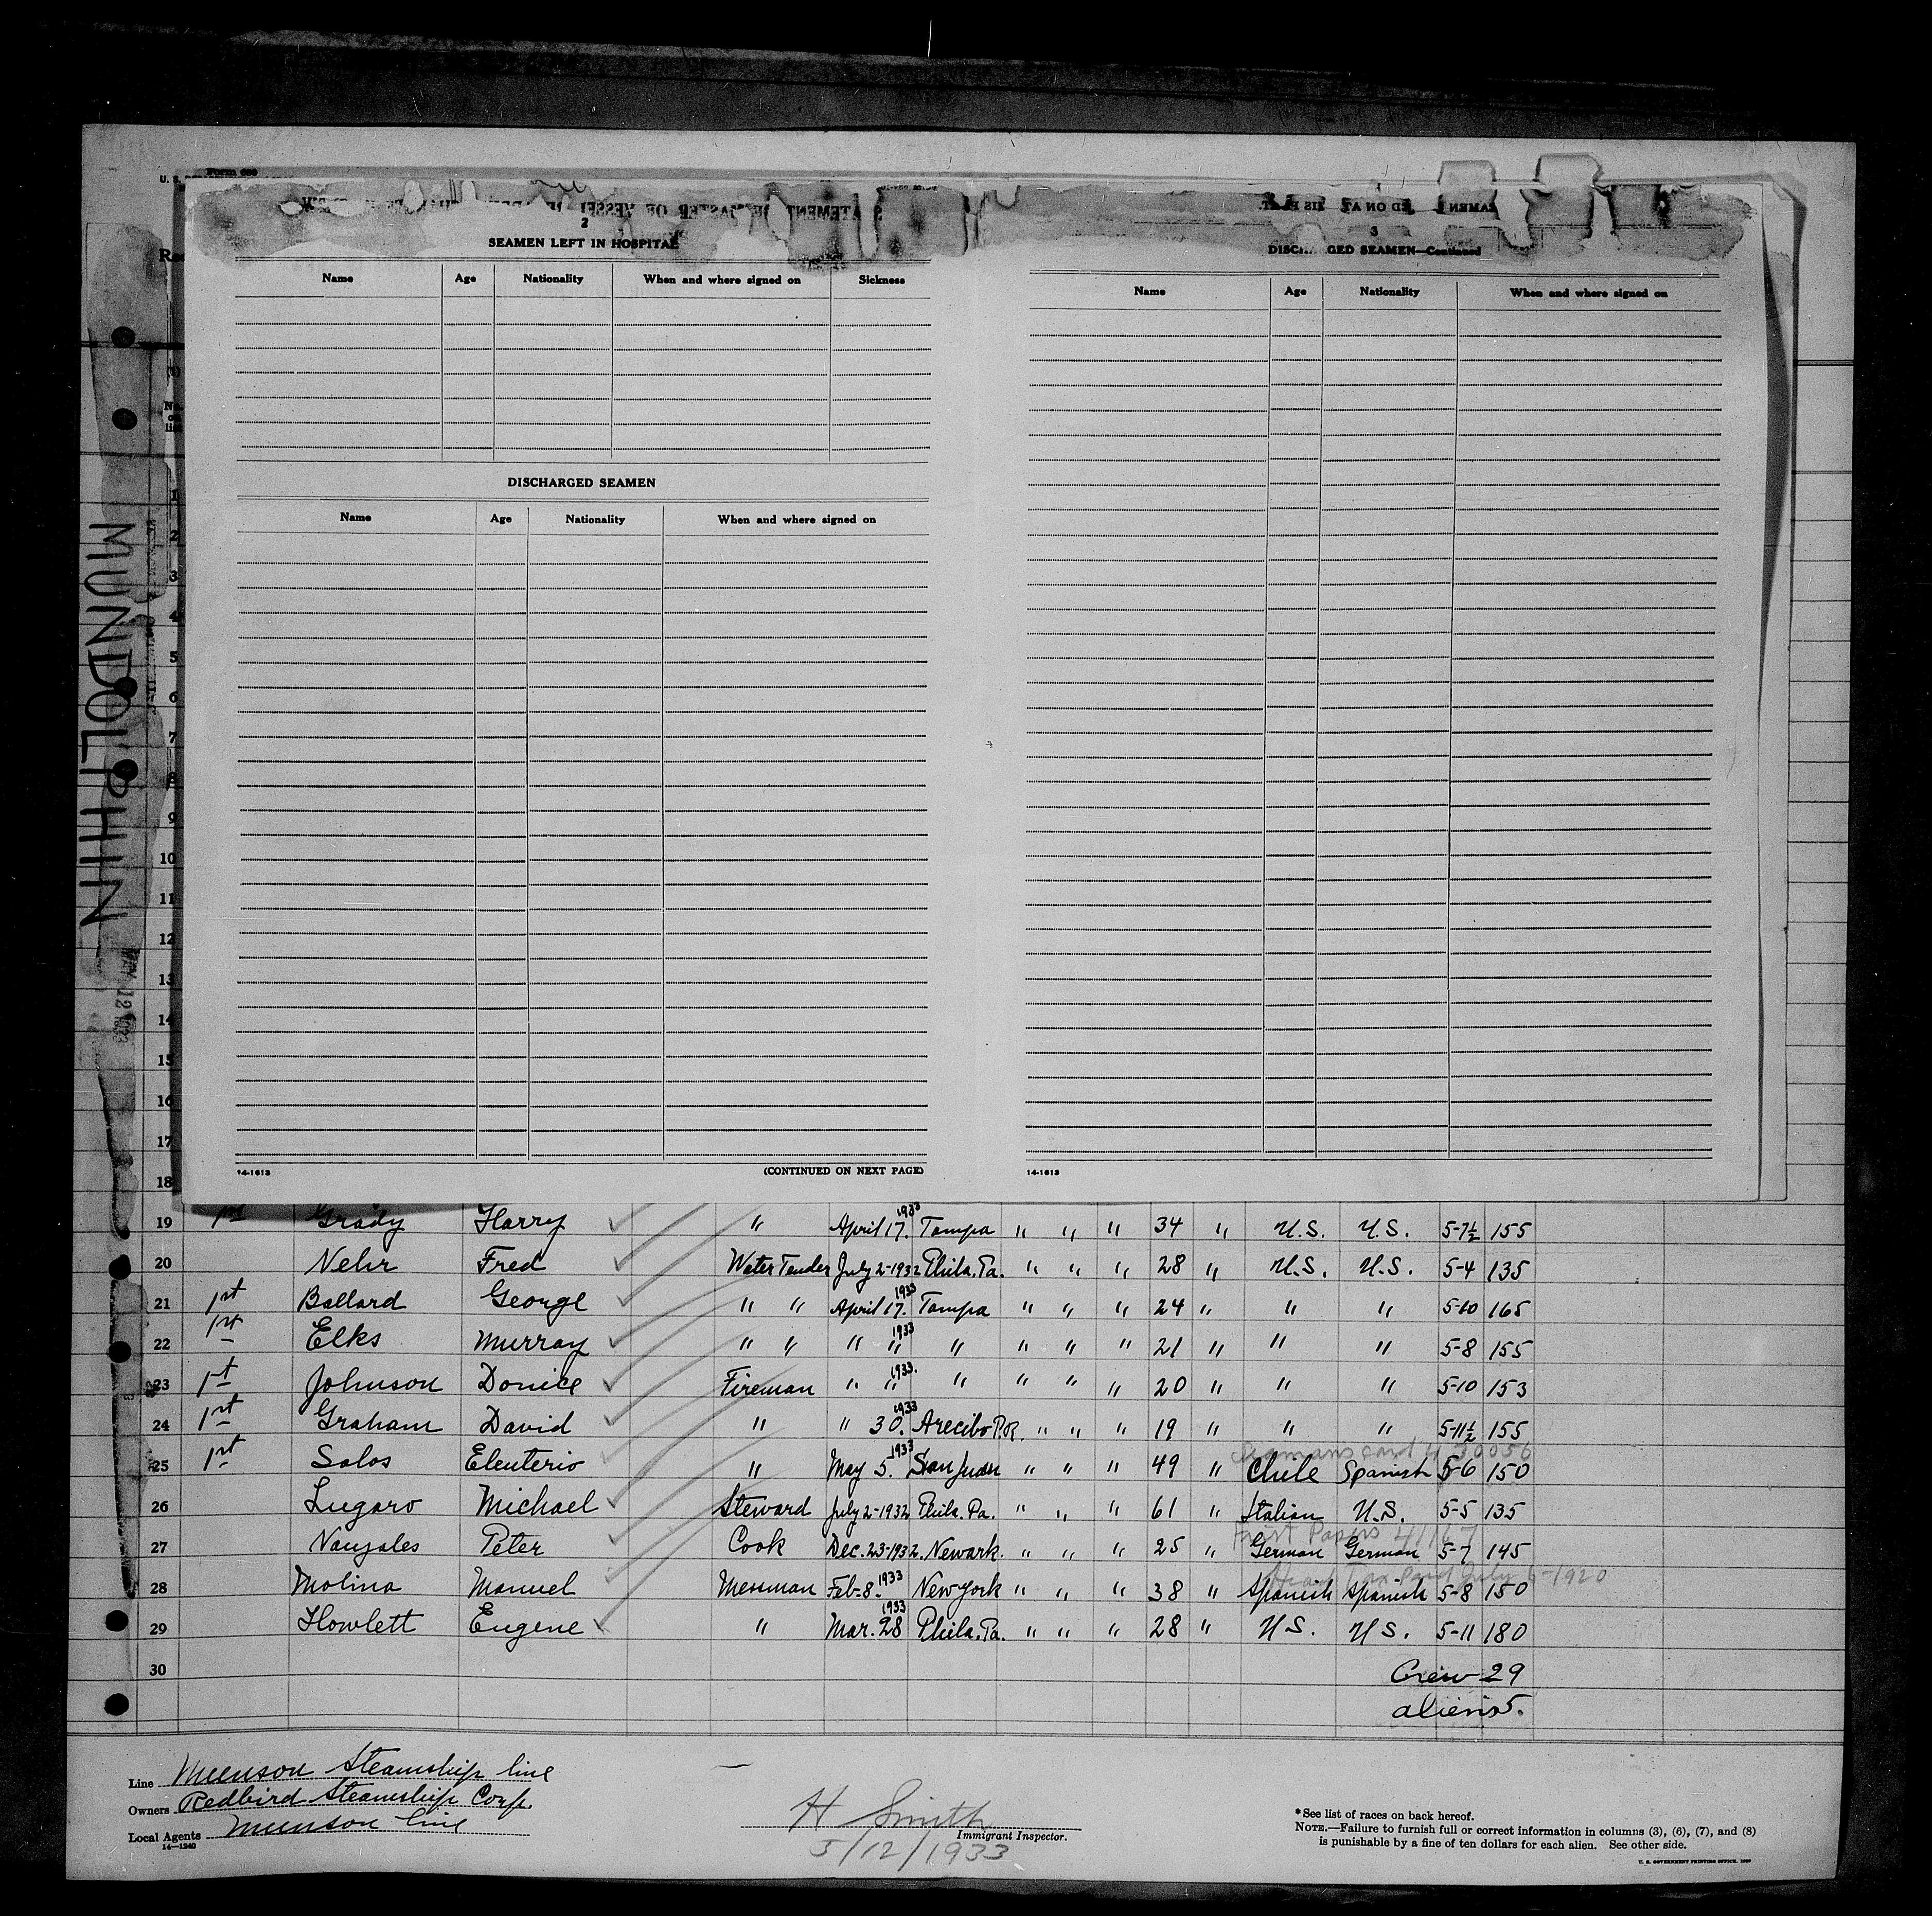 Form 689
U. S.
2
SEAMEN LEFT IN HOSPITAL
Name Age Nationality When and where signed on Sickness
DISCHARGED SEAMEN
Name Age Nationality When and where signed on
14-1613 (CONTINUED ON NEXT PAGE)
3
DISCHARGED SEAMEN—Continued
Name Age Nationality When and where signed on
14-1613
MUNDOLPHIN
MAY 12 1933
1
2
3
4
5
6
7
8
9
10
11
12
13
14
15
16
17
18
19 1st Grady Harry " April 17. 1933 Tampa " " " 34 " U.S. U.S. 5-7½ 155
20 Nehr Fred Water Tender July 2-1932 Phila. Pa. " " " 28 " U.S. U.S. 5-4 135
21 1st Ballard George " " April 17. 1933 Tampa " " " 24 " " " 5-10 165
22 1st Elks Murray " " " " 1933 " " " " 21 " " " 5-8 155
23 1st Johnson Donice Fireman " " 1933. " " " " 20 " " " 5-10 153
24 1st Graham David " " 30. 1933 Arecibo P.R. " " " 19 " " " 5-11½ 155
Seamans card # 30056
25 1st Salos Eleuterio " May 5. 1933 San Juan " " " 49 " Chile Spanish 5-6 150
26 Lugaro Michael Steward July 2-1932 Phila. Pa. " " " 61 " Italian U.S. 5-5 135
First Papers
27 Nangales Peter Cook Dec. 23-1932. Newark. " " " 25 " German German 5-7 145
Head Tax Paid July 6-1920
28 Molina Manuel Messman Feb-8. 1933 New York " " " 38 " Spanish Spanish 5-8 150
29 Howlett Eugene " Mar. 28 1933 Phila. Pa. " " " 28 " U.S. U.S. 5-11 180
30 Crew-29
aliens 5.
Line Munson Steamship line
Owners Redbird Steamship Corp.
Local Agents Munson Line
14—1240
H Smith
Immigrant Inspector.
5/12/1933
* See list of races on back hereof.
NOTE.—Failure to furnish full or correct information in columns (3), (6), (7), and (8)
is punishable by a fine of ten dollars for each alien. See other side.
U. S. GOVERNMENT PRINTING OFFICE